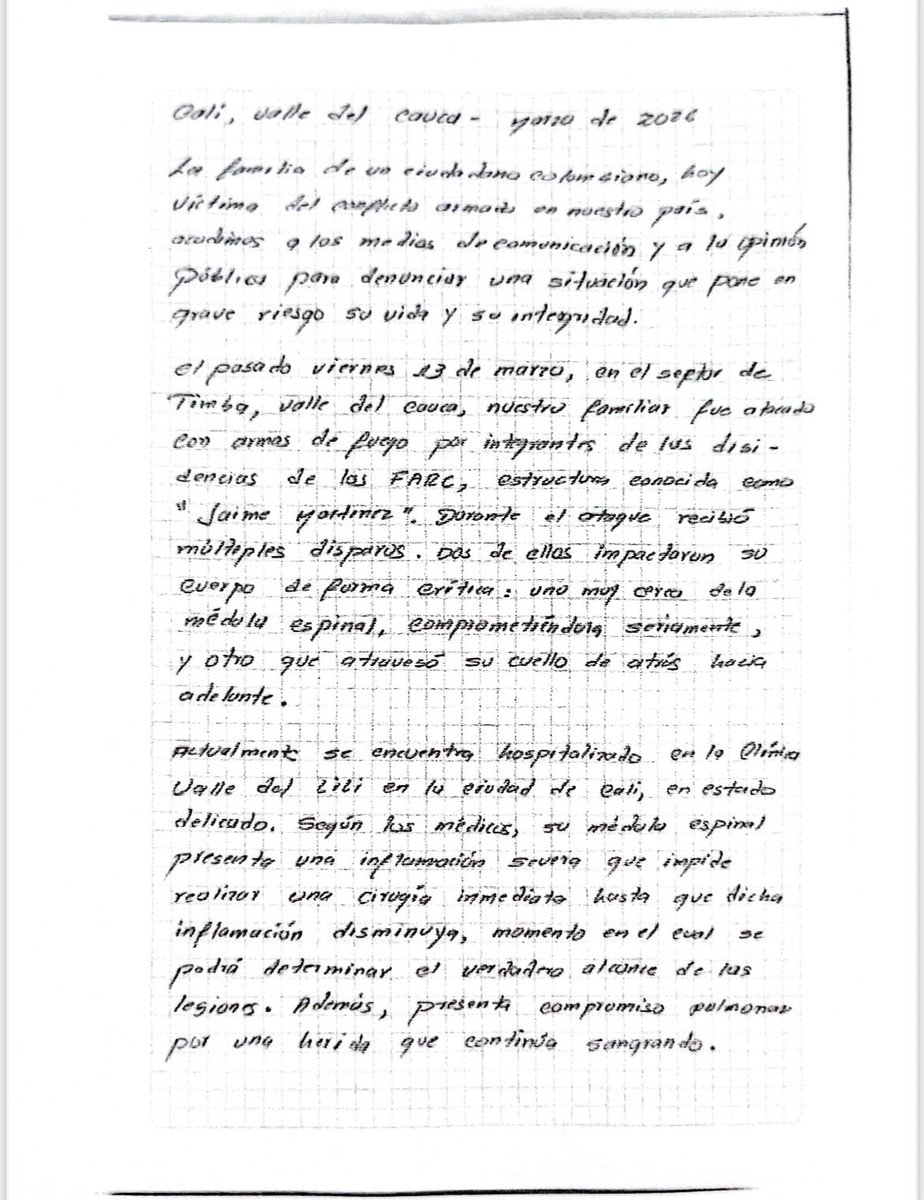 Cali, Valle del Cauca - Marzo de 2026
La familia de un ciudadano colombiano, hoy
víctima del conflicto armado en nuestro país,
acudimos a los medios de comunicación y a la opinión
pública para denunciar una situación que pone en
grave riesgo su vida y su integridad.
El pasado viernes 13 de marzo, en el sector de
Timba, Valle del Cauca, nuestro familiar fue atacado
con armas de fuego por integrantes de las disi-
dencias de las FARC, estructura conocida como
"Jaime Martínez". Durante el ataque recibió
múltiples disparos. Dos de ellos impactaron su
cuerpo de forma crítica: uno muy cerca de la
médula espinal, comprometiéndola seriamente,
y otro que atravesó su cuello de atrás hacia
adelante.
Actualmente se encuentra hospitalizado en la Clínica
Valle del Lili en la ciudad de Cali, en estado
delicado. Según los médicos, su médula espinal
presenta una inflamación severa que impide
realizar una cirugía inmediata hasta que dicha
inflamación disminuya, momento en el cual se
podrá determinar el verdadero alcance de las
legiones. Además, presenta compromiso pulmonar
por una herida que continúa sangrando.